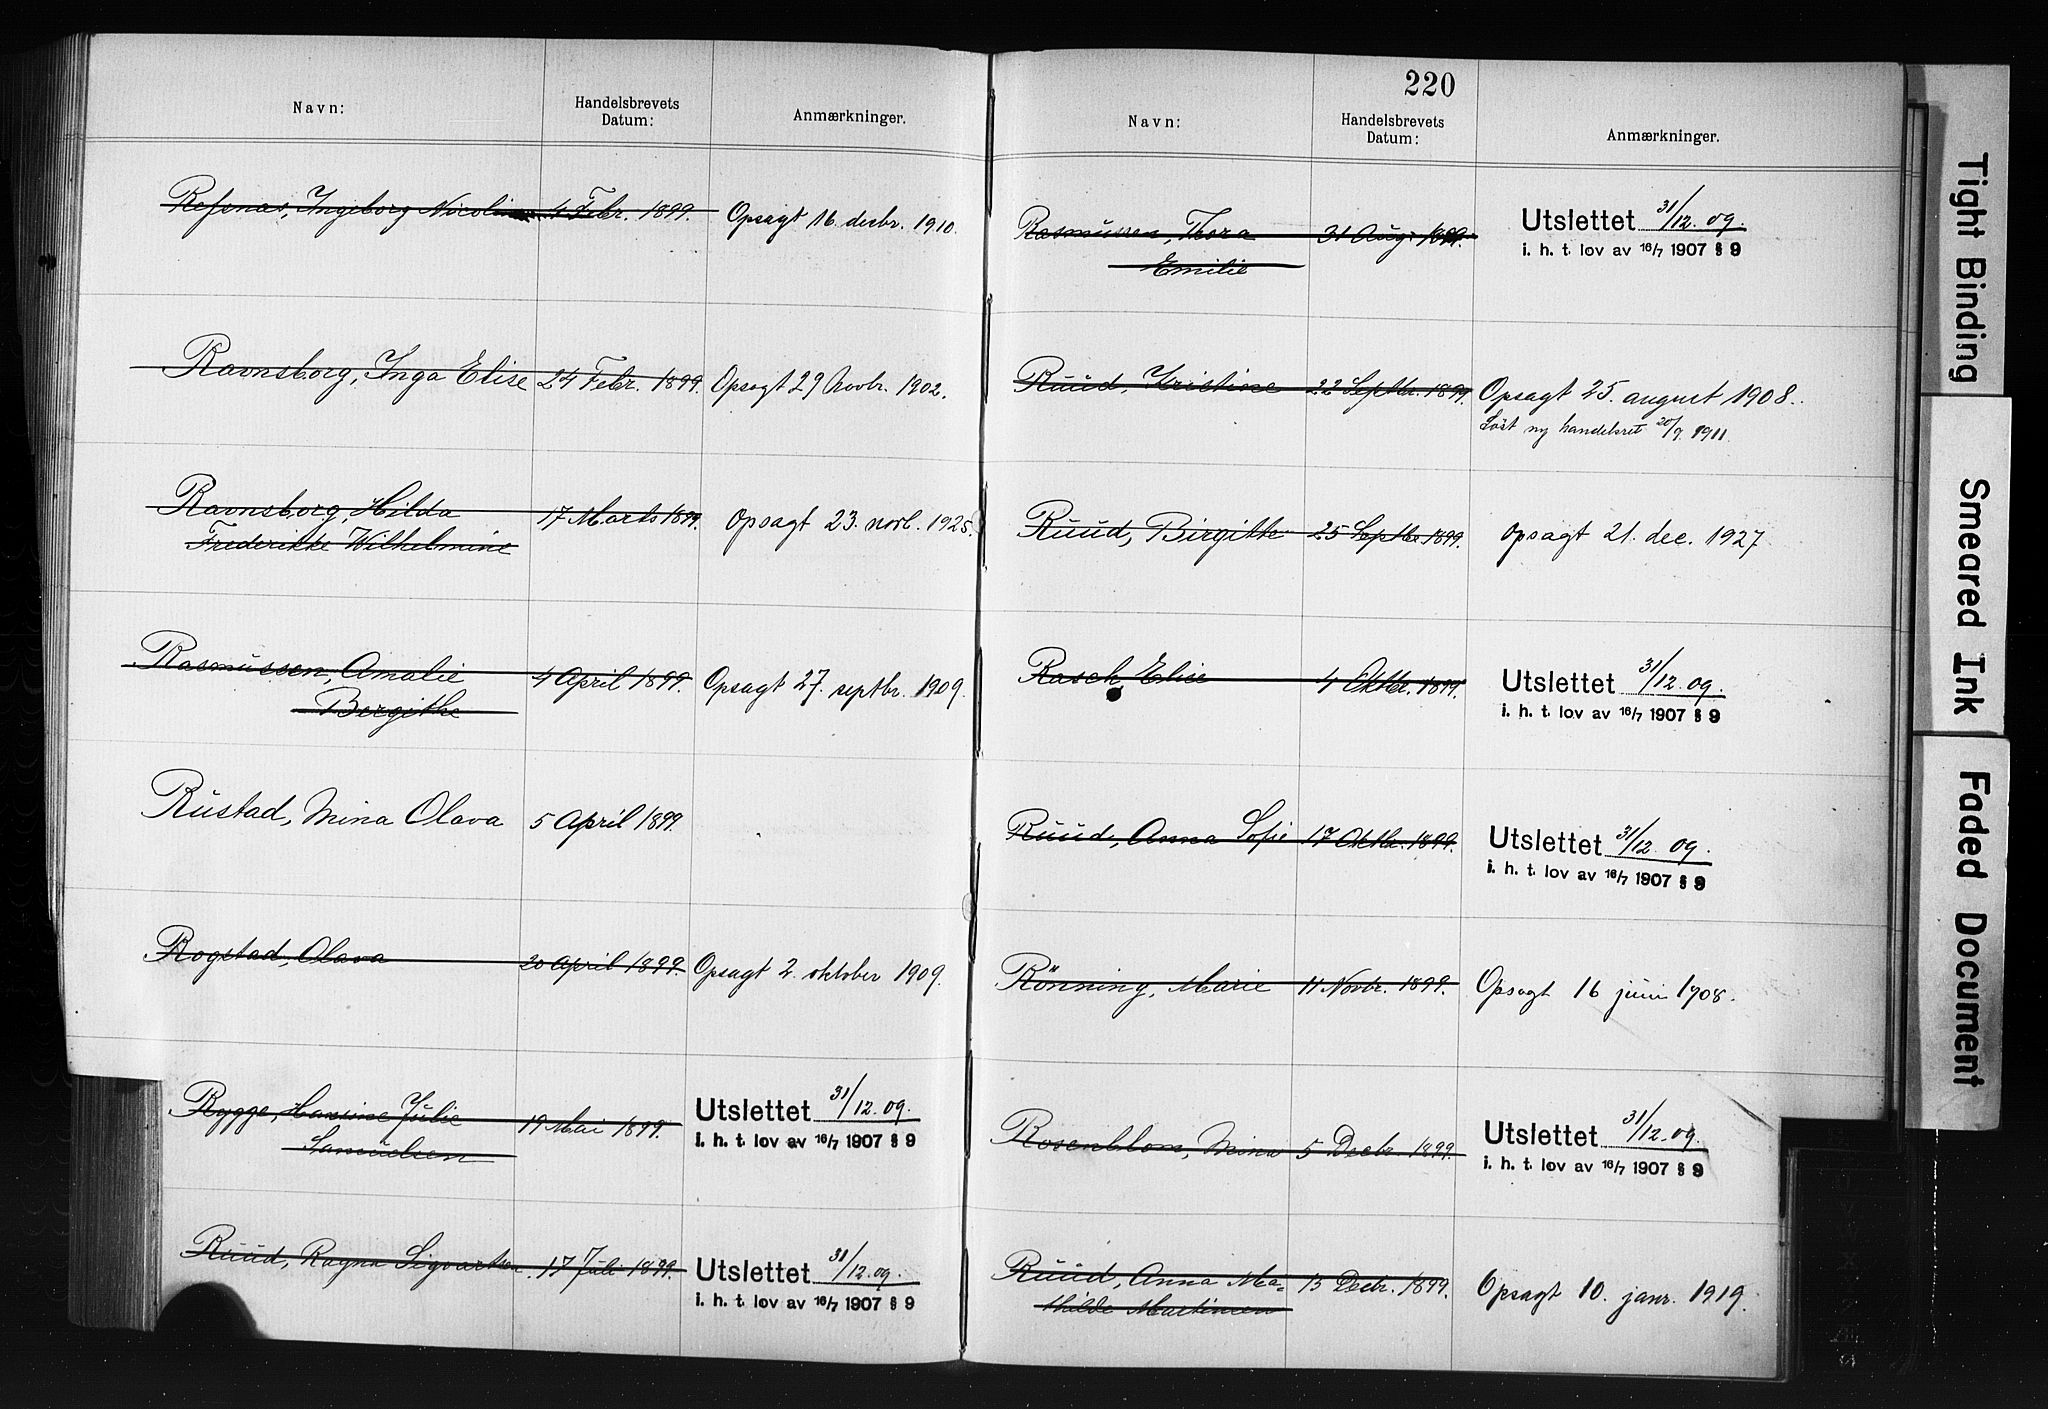 Navn: Handelsbrevets Datum: Anmærkninger.
Refsnæs, Ingeborg Nicoline 4 Febr. 1899. Opsagt 16 decbr. 1910.
Ravnsborg, Inga Elise 24 Febr. 1899. Opsagt 29 Novbr. 1902.
Ravnsborg, Hilda 17 Marts 1899. Opsagt 23. novb. 1925.
Frederikke Wilhelmine
Rasmussen, Amalie 4 April 1899. Opsagt 27. septbr. 1909.
Bergithe
Rustad, Mina Olava 5 April 1899.
Rogstad, Olava 20 April 1899. Opsagt 2. oktober 1909.
Rygge, Hansine Julie 19 Mai 1899. Utslettet 31/12.09.
Samuelsen i. h. t. lov av 16/7 1907 § 9
Ruud, Ragna Sigvartsen 17 Juli 1899. Utslettet 31/12.09.
i. h. t. lov av 16/7 1907 § 9
220
Navn: Handelsbrevets Datum: Anmærkninger.
Rasmussen, Thora 31 Aug. 1899. Utslettet 31/12.09.
Emilie i. h. t. lov av 16/7 1907 § 9
Ruud, Kristine 22 Septbr. 1899. Opsagt 25. august 1908.
Løst ny handelsret 20/9. 1911.
Ruud, Birgitte 25 Septbr 1899. Opsagt 21. dec. 1927.
Rasch, Elise 4 Oktbr. 1899. Utslettet 31/12.09.
i. h. t. lov av 16/7 1907 § 9
Ruud, Anna Sofie 17 Oktbr. 1899. Utslettet 31/12.09.
i. h. t. lov av 16/7 1907 § 9
Rönning, Marie 11 Novbr. 1899. Opsagt 16 juni 1908.
Rosenblom, Mina 5 Decbr. 1899. Utslettet 31/12.09.
i. h. t. lov av 16/7 1907 § 9
Ruud, Anna Ma- 13 Decbr. 1899. Opsagt 10. janr. 1919.
thilde Martinsen
Tight Binding
Smeared Ink
Faded Document